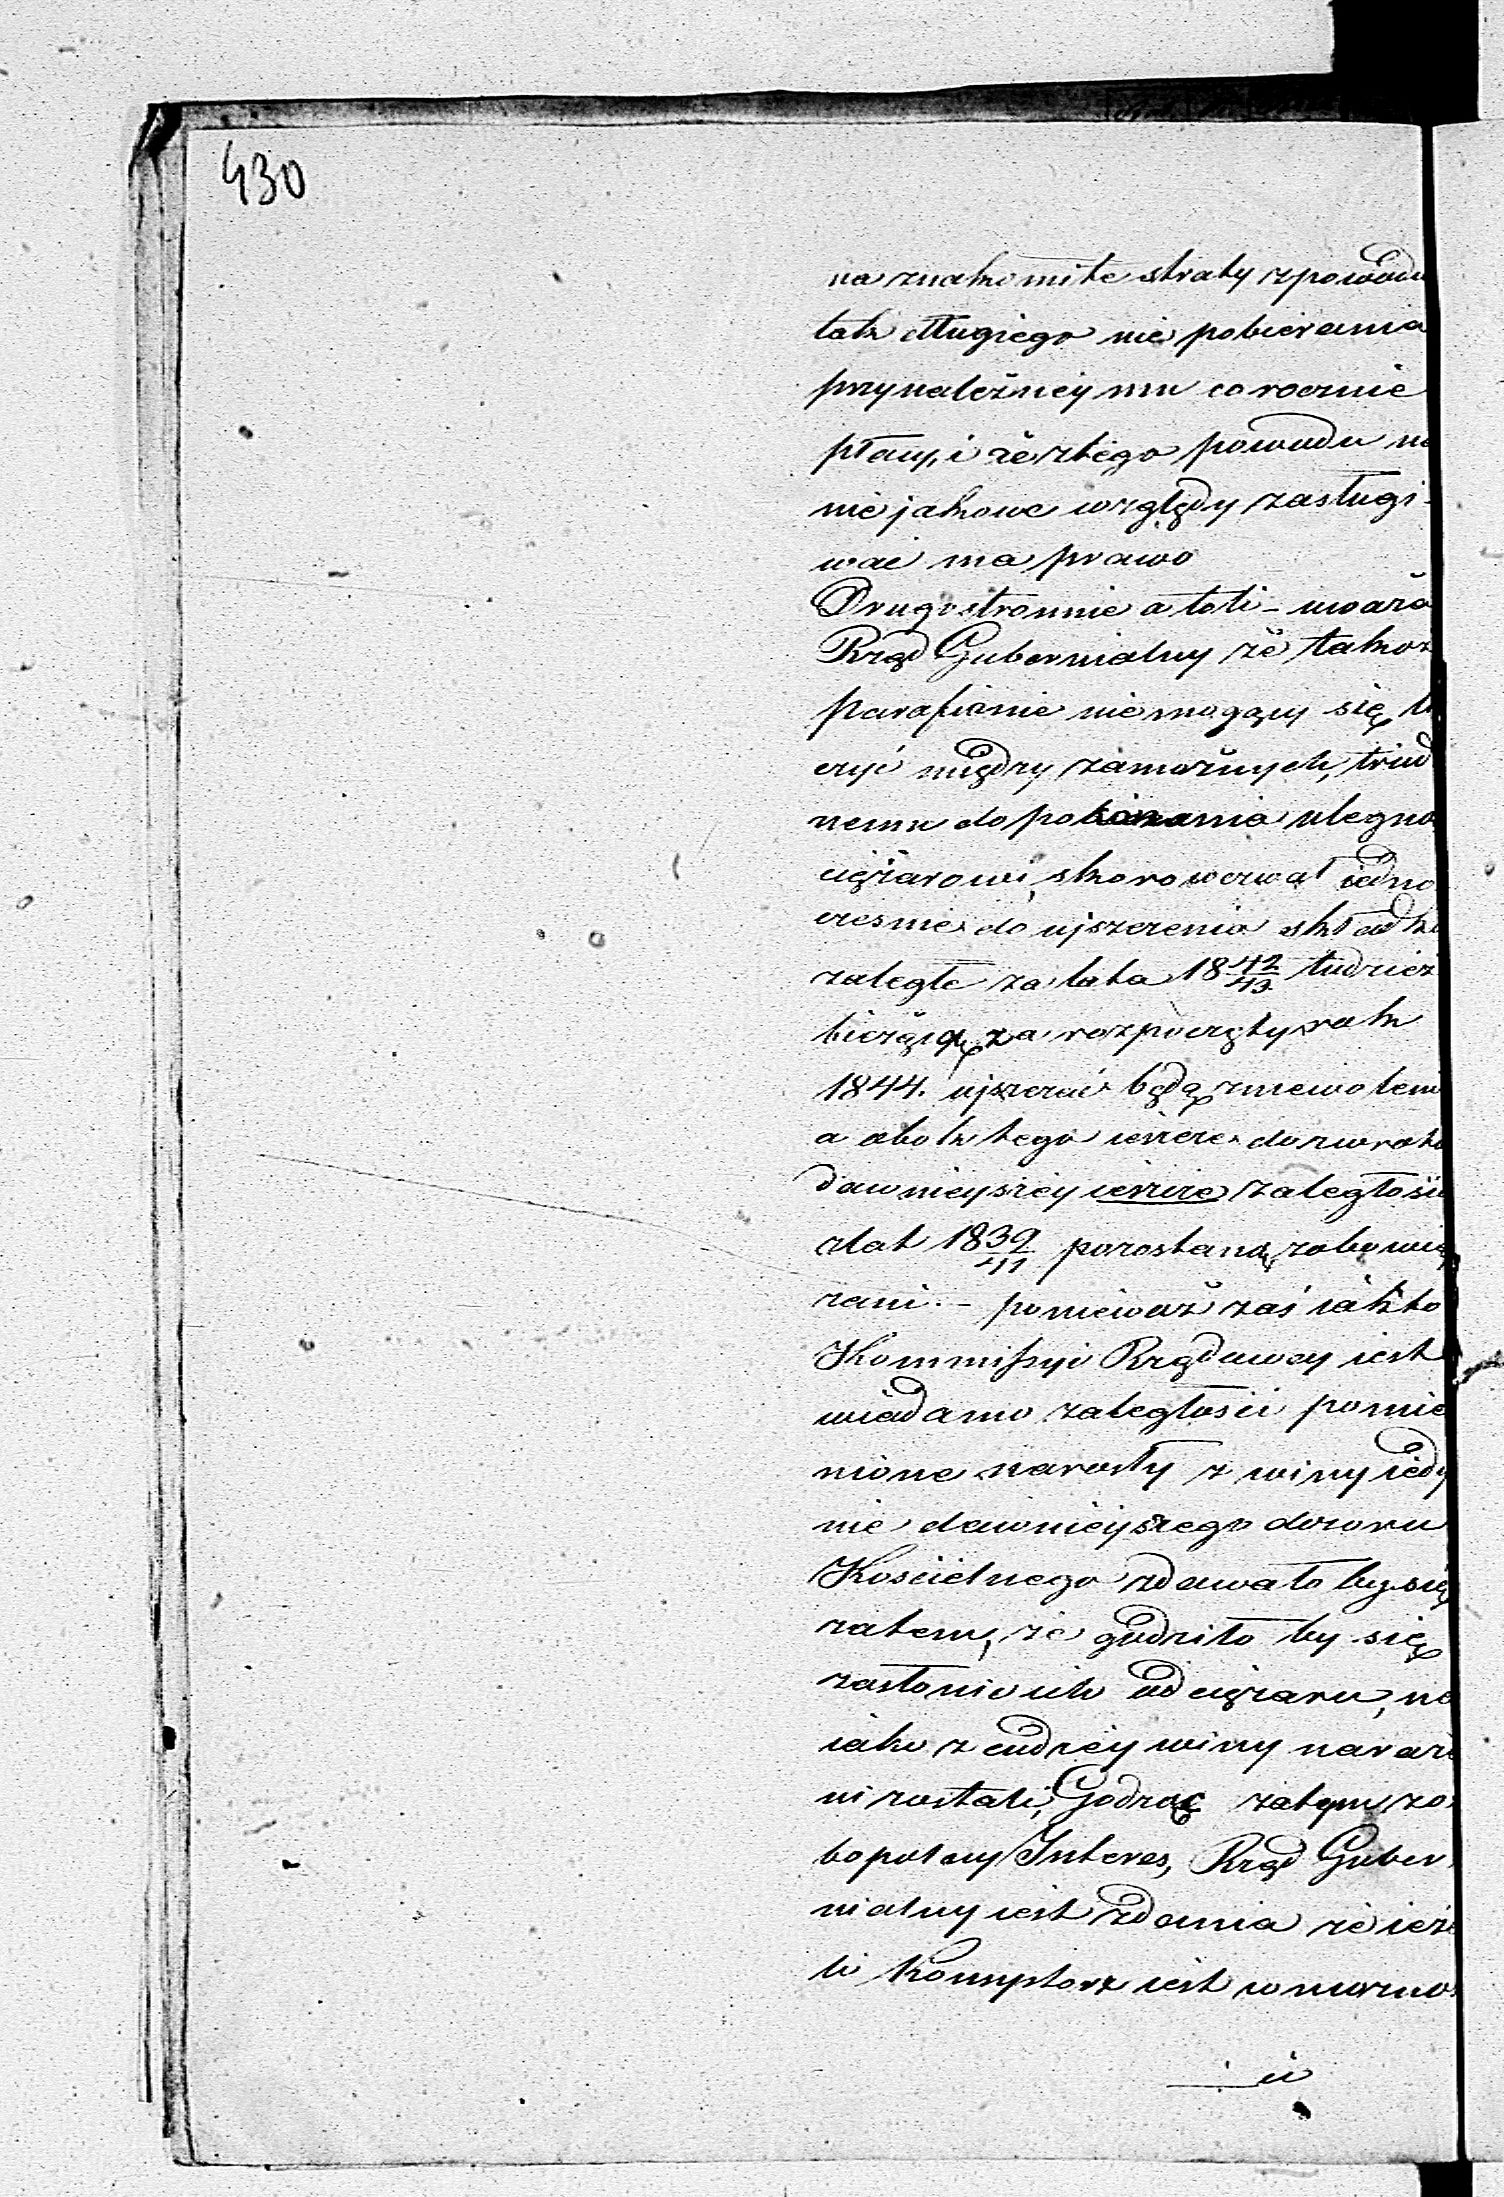 430
na znakomite straty z powodu
tak długiego nie pobierania
przynależnéy mu corocznie
płacy, i że z tego powodu na
nie jakowe względy zasługi-
wać ma prawo
Drugostronnie atoli - uważa
Rząd Gubernialny że takoż
parafianie nie mogący się li
czyć między zamożnych, trud
nemu do pokonania ulegną
ciężarowi, skoro wezwał iedno
cześnie do uiszczenia składki
zaległe za lata 18 42/43 tudzież
bieżącą za rozpoczęty rok
1844. uiszczać będą zniewoleni
a obok tego ieszcze do zwrotu
dawnieyszéy ieszcze zaległości
z lat 18 39/41 pozostaną zobowią
zani. - ponieważ zaś iak to
Kommissyi Rządowey iest
wiadomo zaległości pomie
nione narosły z winy iedy
nie dawnieyszego dozoru
Kościelnego zdawało by się
zatem, że godziło by się
zasłonić ich od ciężaru, na
iaki z cudzéy winy naraże
ni zostali, Godząc zatym zo
bopolny Interes, Rząd Guber
nialny iest zdania że ieże
li iest w możno
ści